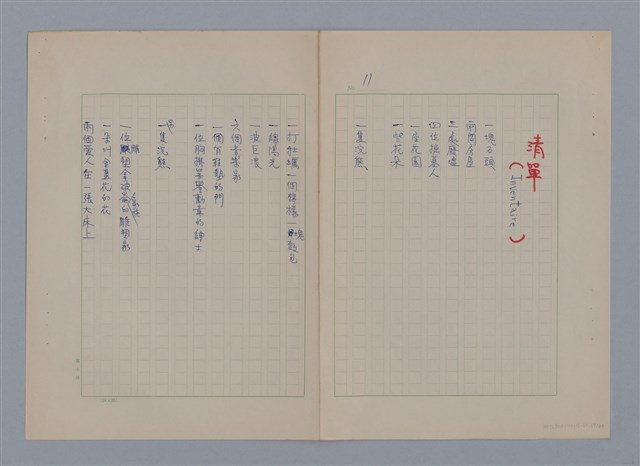 11
清單
(Inventaire)
一塊石頭
兩間房屋
三處廢墟
四位掘墓人
一座花園
一些花朵
一隻浣熊
一打牡蠣一個檸檬一塊麵包
一線陽光
一波巨浪
六個音樂家
一個有鞋墊的門
一位胸掛榮譽勳章的紳士
另一隻浣熊
一位雕塑拿破崙的雕塑家
一朵叫金盞花的花
兩個愛人在一張大床上